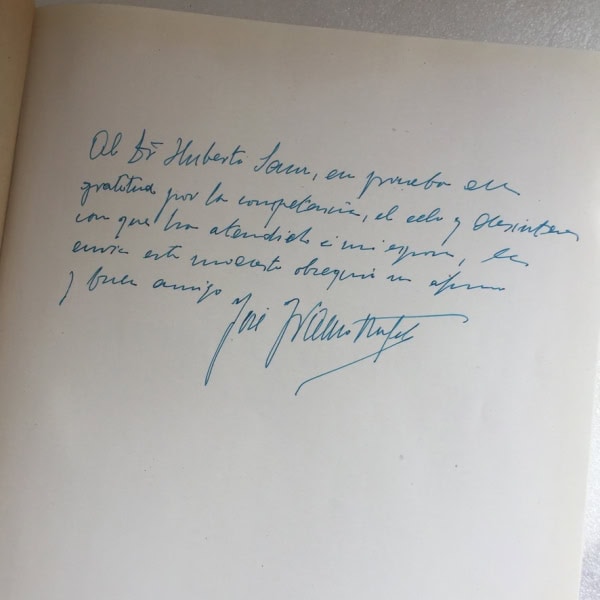 Al Dr Huberto, en prueba de
gratitud por la competencia, el celo y desinteres
con que ha atendido a mi esposa, le
envia este modesto obsequio su
y buen amigo
José